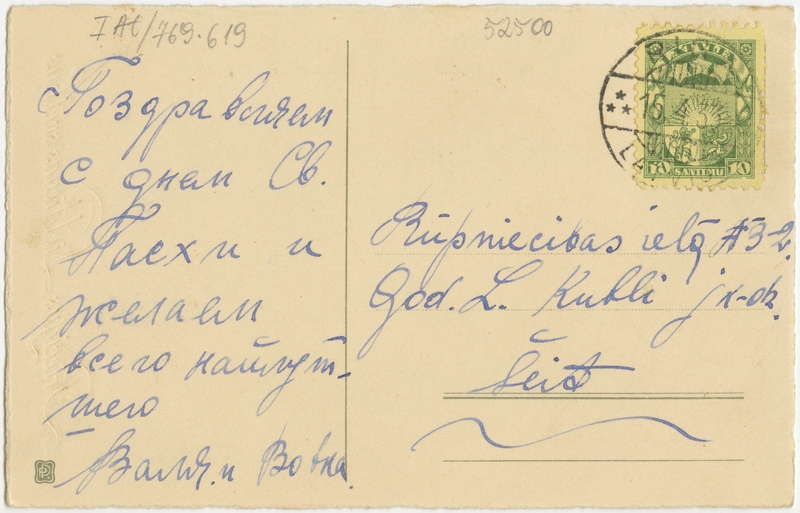 I At/769.619
52500
Поздравляем
с днем Св.
Пасхи и
желаем
всего наилуч-
шего
Валя и Вовка.
LATVIJA
15
10 10
SANTIMU
LATV
Rūpniecības ielā #3-2.
God. L. Kubli jk-dz.
Šeit